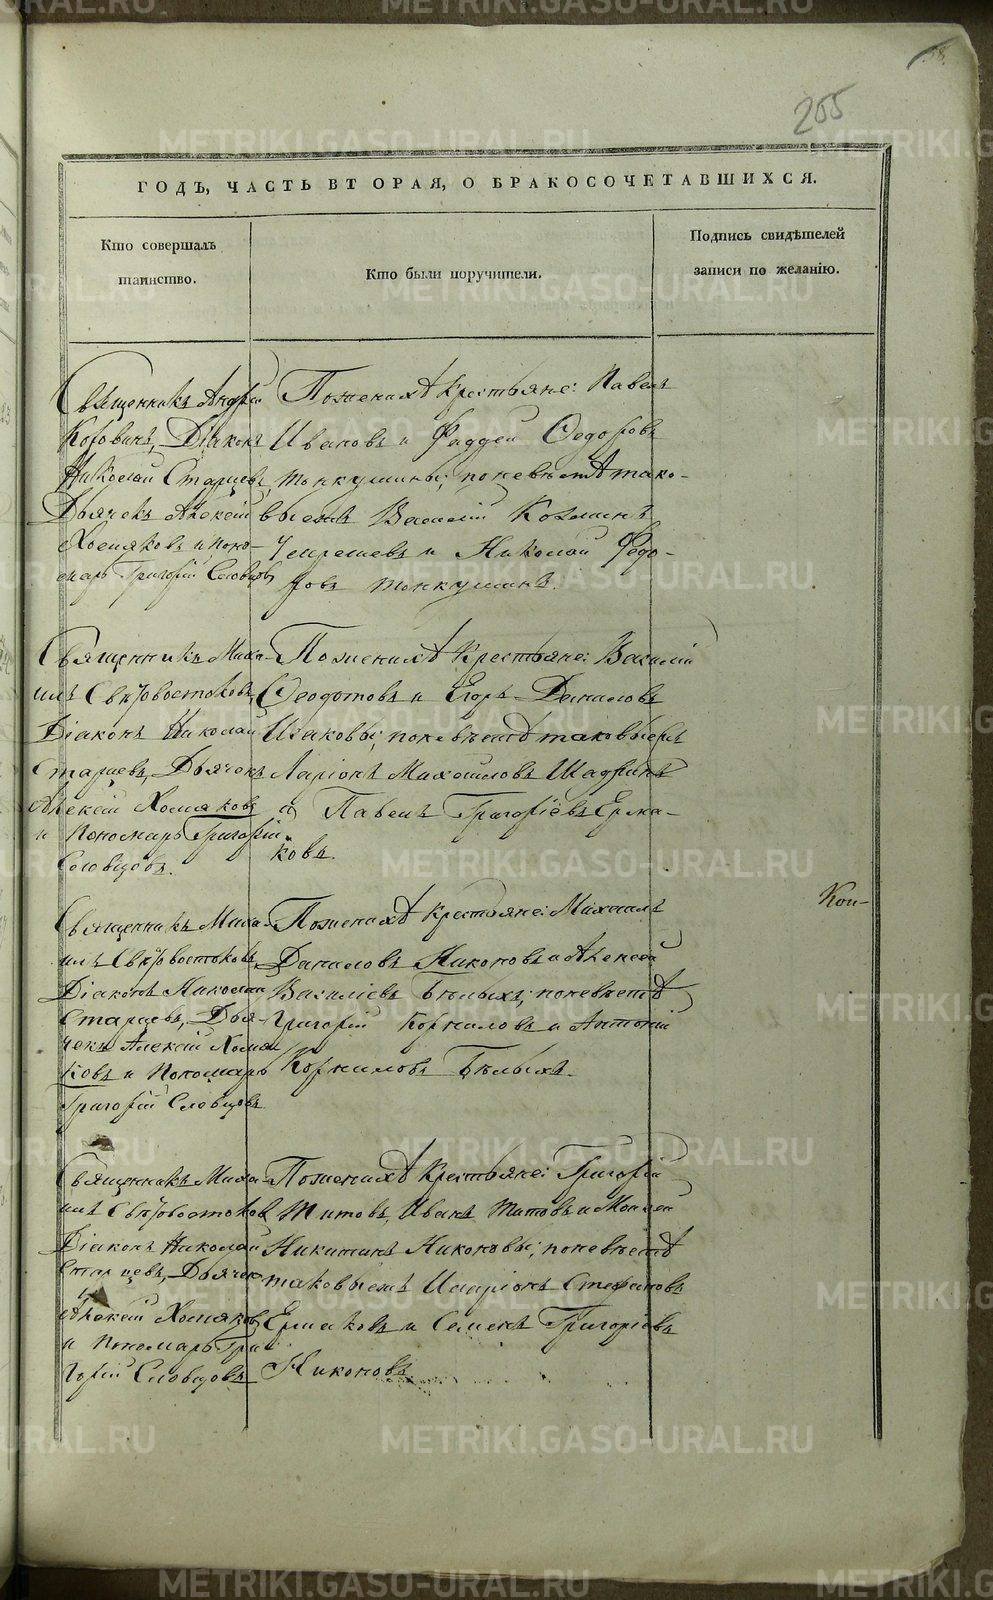 255
ГОДЪ, ЧАСТЬ ВТОРАЯ, О БРАКОСОЧЕТАВШИХСЯ.
Кто совершалъ
таинство.
Кто были поручители.
Подпись свидѣтелей
записи по желанію.
Священникъ Андрей
Коровинъ, Діаконъ
Николай Старцевъ,
Дьячекъ Алексій
Хомяковъ и Поно-
марь Григорій Словцовъ
По женихѣ Крестьяне: Павелъ
Ивановъ и Фаддей Ѳедоровъ
Тонкушины; по невѣстѣ тако-
выеже Василій Козминъ
и Николай Ѳедо-
ровъ Тонкушинъ.
Священникъ Миха-
илъ Свѣтовостоковъ,
Діаконъ Николай
Старцевъ, Дьячекъ
Алексій Хомяковъ
и Пономарь Григорій
Словцовъ.
По женихѣ Крестьяне: Василій
Ѳеодотовъ и Егоръ Даниловъ
по невѣстѣ таковыеже
Ларіонъ Михайловъ Шадринъ
и Павелъ Григорьевъ Ерма-
ковъ.
Священникъ Миха-
илъ Свѣтовостоковъ,
Діаконъ Николай
Старцевъ, Дья-
чекъ Алексій Хомя-
ковъ и Пономарь
Григорій Словцовъ
По женихѣ Крестьяне: Михаилъ
Даниловъ Никоновъ и Алексей
Василіевъ Бѣлыхъ; по невѣстѣ
Григорій Корниловъ и Антоній
Корниловъ Бѣлыхъ.
Кон-
Священникъ Миха-
илъ Свѣтовостоковъ
Діаконъ Николай
Старцевъ, Дьячек
Алексій Хомяковъ
и Пономарь Гри-
горій Словцовъ
По женихѣ Крестьяне: Григорій
Титовъ, Иванъ Титовъ и Моисей
Никитинъ Никоновы; по невѣстѣ
таковыежъ Иларіонъ Стефановъ
Ермаковъ и Семенъ Григоріевъ
Никоновъ
METRIKI.GASO-URAL.RU